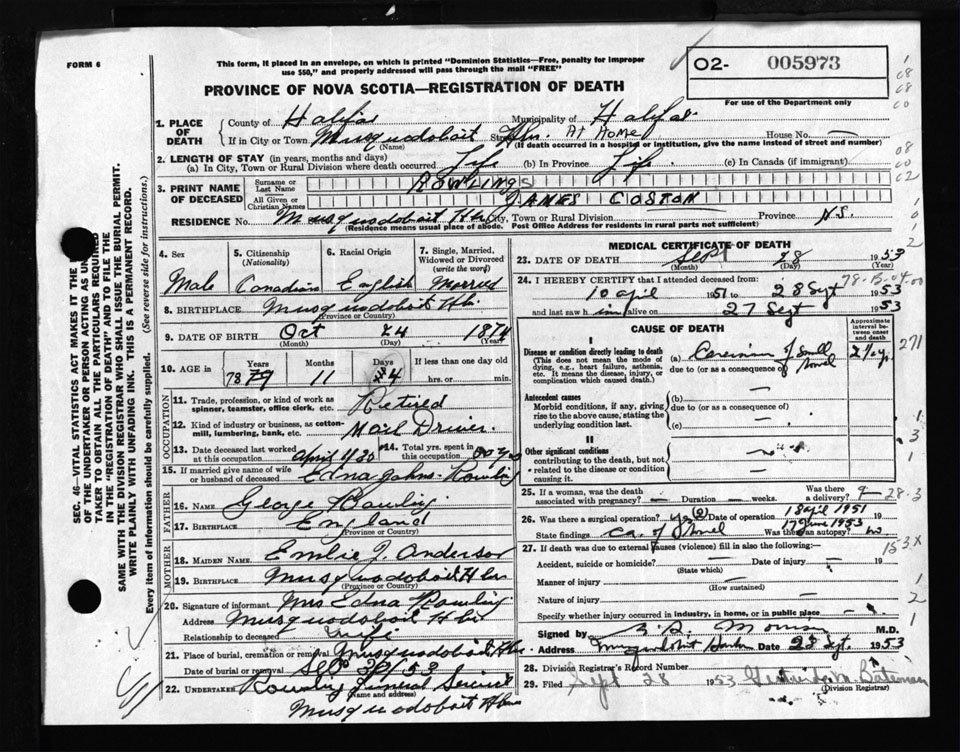 FORM 6
This form, if placed in an envelope, on which is printed "Dominion Statistics—Free, penalty for improper
use $50," and properly addressed will pass through the mail "FREE"
O2- 005973
For use of the Department only
PROVINCE OF NOVA SCOTIA—REGISTRATION OF DEATH
1. PLACE OF DEATH
County of Halifax Municipality of Halifax
If in City or Town Musquodoboit Hbr. Street At Home House No. —
(Name) (If death occurred in a hospital or institution, give the name instead of street and number)
2. LENGTH OF STAY (in years, months and days)
(a) In City, Town or Rural Division where death occurred Life (b) In Province Life (c) In Canada (if immigrant)
3. PRINT NAME OF DECEASED
Surname or Last Name ROWLINGS
All Given or Christian Names JAMES COSTON
RESIDENCE No. Musquodoboit Hbr City, Town or Rural Division Province N.S.
(Residence means usual place of abode. Post Office Address for residents in rural parts not sufficient)
4. Sex Male
5. Citizenship (Nationality) Canadian
6. Racial Origin English
7. Single, Married, Widowed or Divorced (write the word) Married
8. BIRTHPLACE Musquodoboit Hbr.
(Province or Country)
9. DATE OF BIRTH Oct 24 1874
(Month) (Day) (Year)
10. AGE in Years 78 79 Months 11 Days 4 If less than one day old hrs. or min.
11. Trade, profession, or kind of work as spinner, teamster, office clerk, etc. Retired
12. Kind of industry or business, as cotton-mill, lumbering, bank, etc. Mail Driver.
13. Date deceased last worked at this occupation April 1/30
14. Total yrs. spent in this occupation
15. If married give name of wife or husband of deceased Edna Rowling
16. Name George Rowling
17. Birthplace England
18. MAIDEN NAME Emlie J. Anderson
19. BIRTHPLACE Musquodoboit Hbr
(Province or Country)
OCCUPATION
FATHER
MOTHER
20. Signature of informant Mrs Edna Rowling
Address Musquodoboit Hbr
Relationship to deceased wife
21. Place of burial, cremation or removal Musquodoboit Hbr.
Date of burial or removal Sep 30/53
22. UNDERTAKER Rowling Funeral Service
(Name and address)
Musquodoboit Hbr
MEDICAL CERTIFICATE OF DEATH
23. DATE OF DEATH Sept 28 1953
(Month) (Day) (Year)
24. I HEREBY CERTIFY that I attended deceased from:
10 april 1951 to 28 Sept 1953
and last saw him alive on 27 Sept 1953
CAUSE OF DEATH
Approximate interval between onset and death
I
Disease or condition directly leading to death
(This does not mean the mode of dying, e.g., heart failure, asthenia, etc. It means the disease, injury, or complication which caused death.
(a)
due to (or as a consequence of)
Antecedent causes
Morbid conditions, if any, giving rise to the above cause, stating the underlying condition last.
(b) —
due to (or as a consequence of)
(c) —
II
Other significant conditions
contributing to the death, but not related to the disease or condition causing it.
25. If a woman, was the death associated with pregnancy? — Duration — weeks. Was there a delivery?
26. Was there a surgical operation? yes (2) Date of operation 18 april 1951
17 June 1953
State findings Ca. of Bowel Was there an autopsy? no
27. If death was due to external causes (violence) fill in also the following:—
Accident, suicide or homicide? — Date of injury — 19
(State which)
Manner of injury —
(How sustained)
Nature of injury —
Specify whether injury occurred in industry, in home, or in public place —
Signed by M.D.
Address Date 28 Sept. 1953
28. Division Registrar's Record Number
29. Filed Sept 28 1953 Bateman
(Division Registrar)
SEC. 46—VITAL STATISTICS ACT MAKES IT THE DUTY
OF THE UNDERTAKER OR PERSON ACTING AS UNDERTAKER
TO OBTAIN ALL THE PARTICULARS REQUIRED
IN THE "REGISTRATION OF DEATH" AND TO FILE THE
SAME WITH THE DIVISION REGISTRAR WHO SHALL ISSUE THE BURIAL PERMIT.
WRITE PLAINLY WITH UNFADING INK. THIS IS A PERMANENT RECORD.
Every item of information should be carefully supplied. (See reverse side for instructions.)